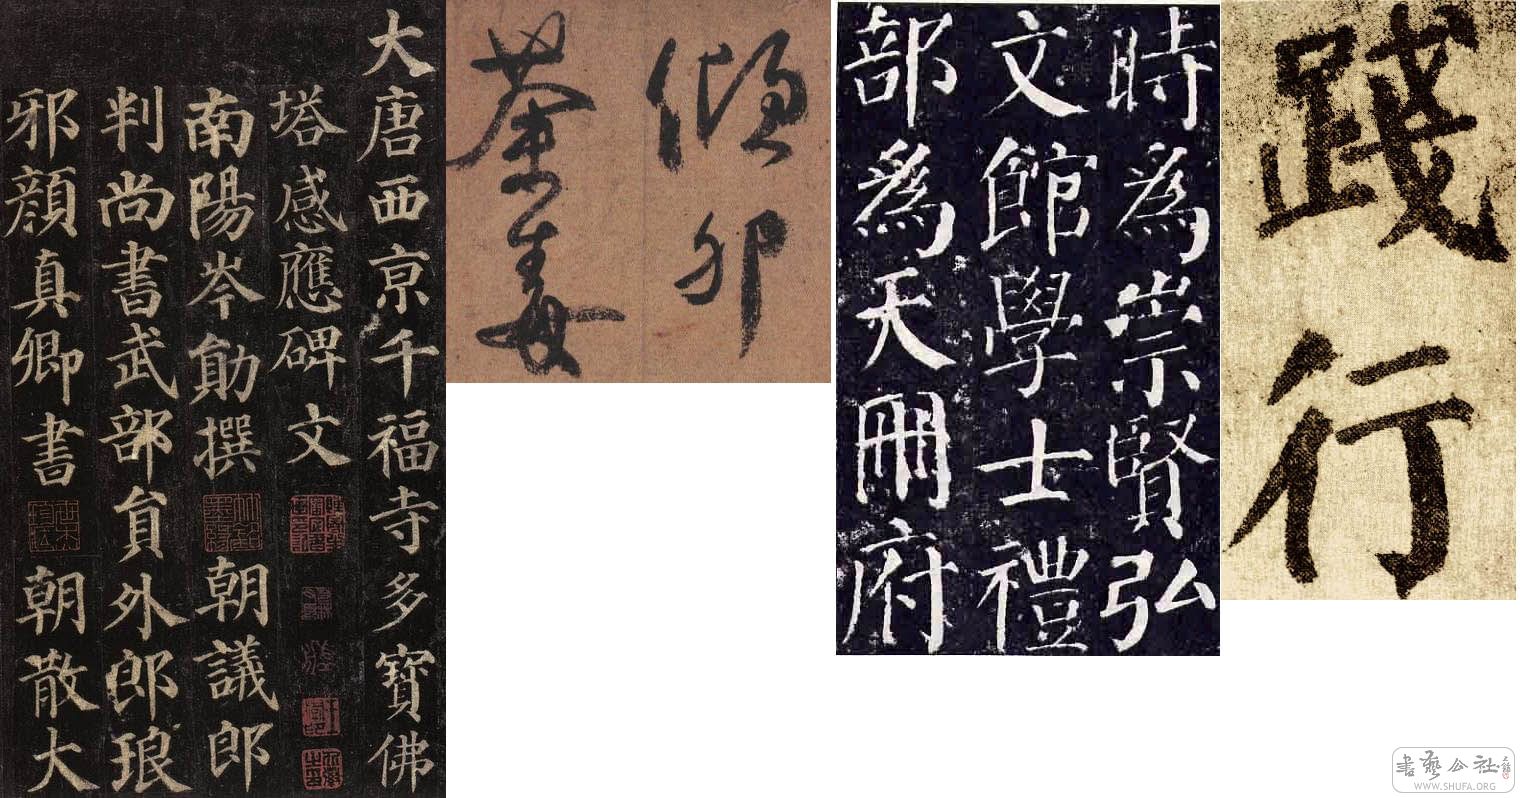 大唐西京千福寺多寶佛
塔感應碑文
南陽岑勛撰 朝議郎
判尚書武部員外郎琅
邪顏真卿書 朝散大
傾卵
荼毒
時為崇賢弘
文館學士禮
部為天冊府
踐行
書藝公社
WWW.SHUFA.ORG